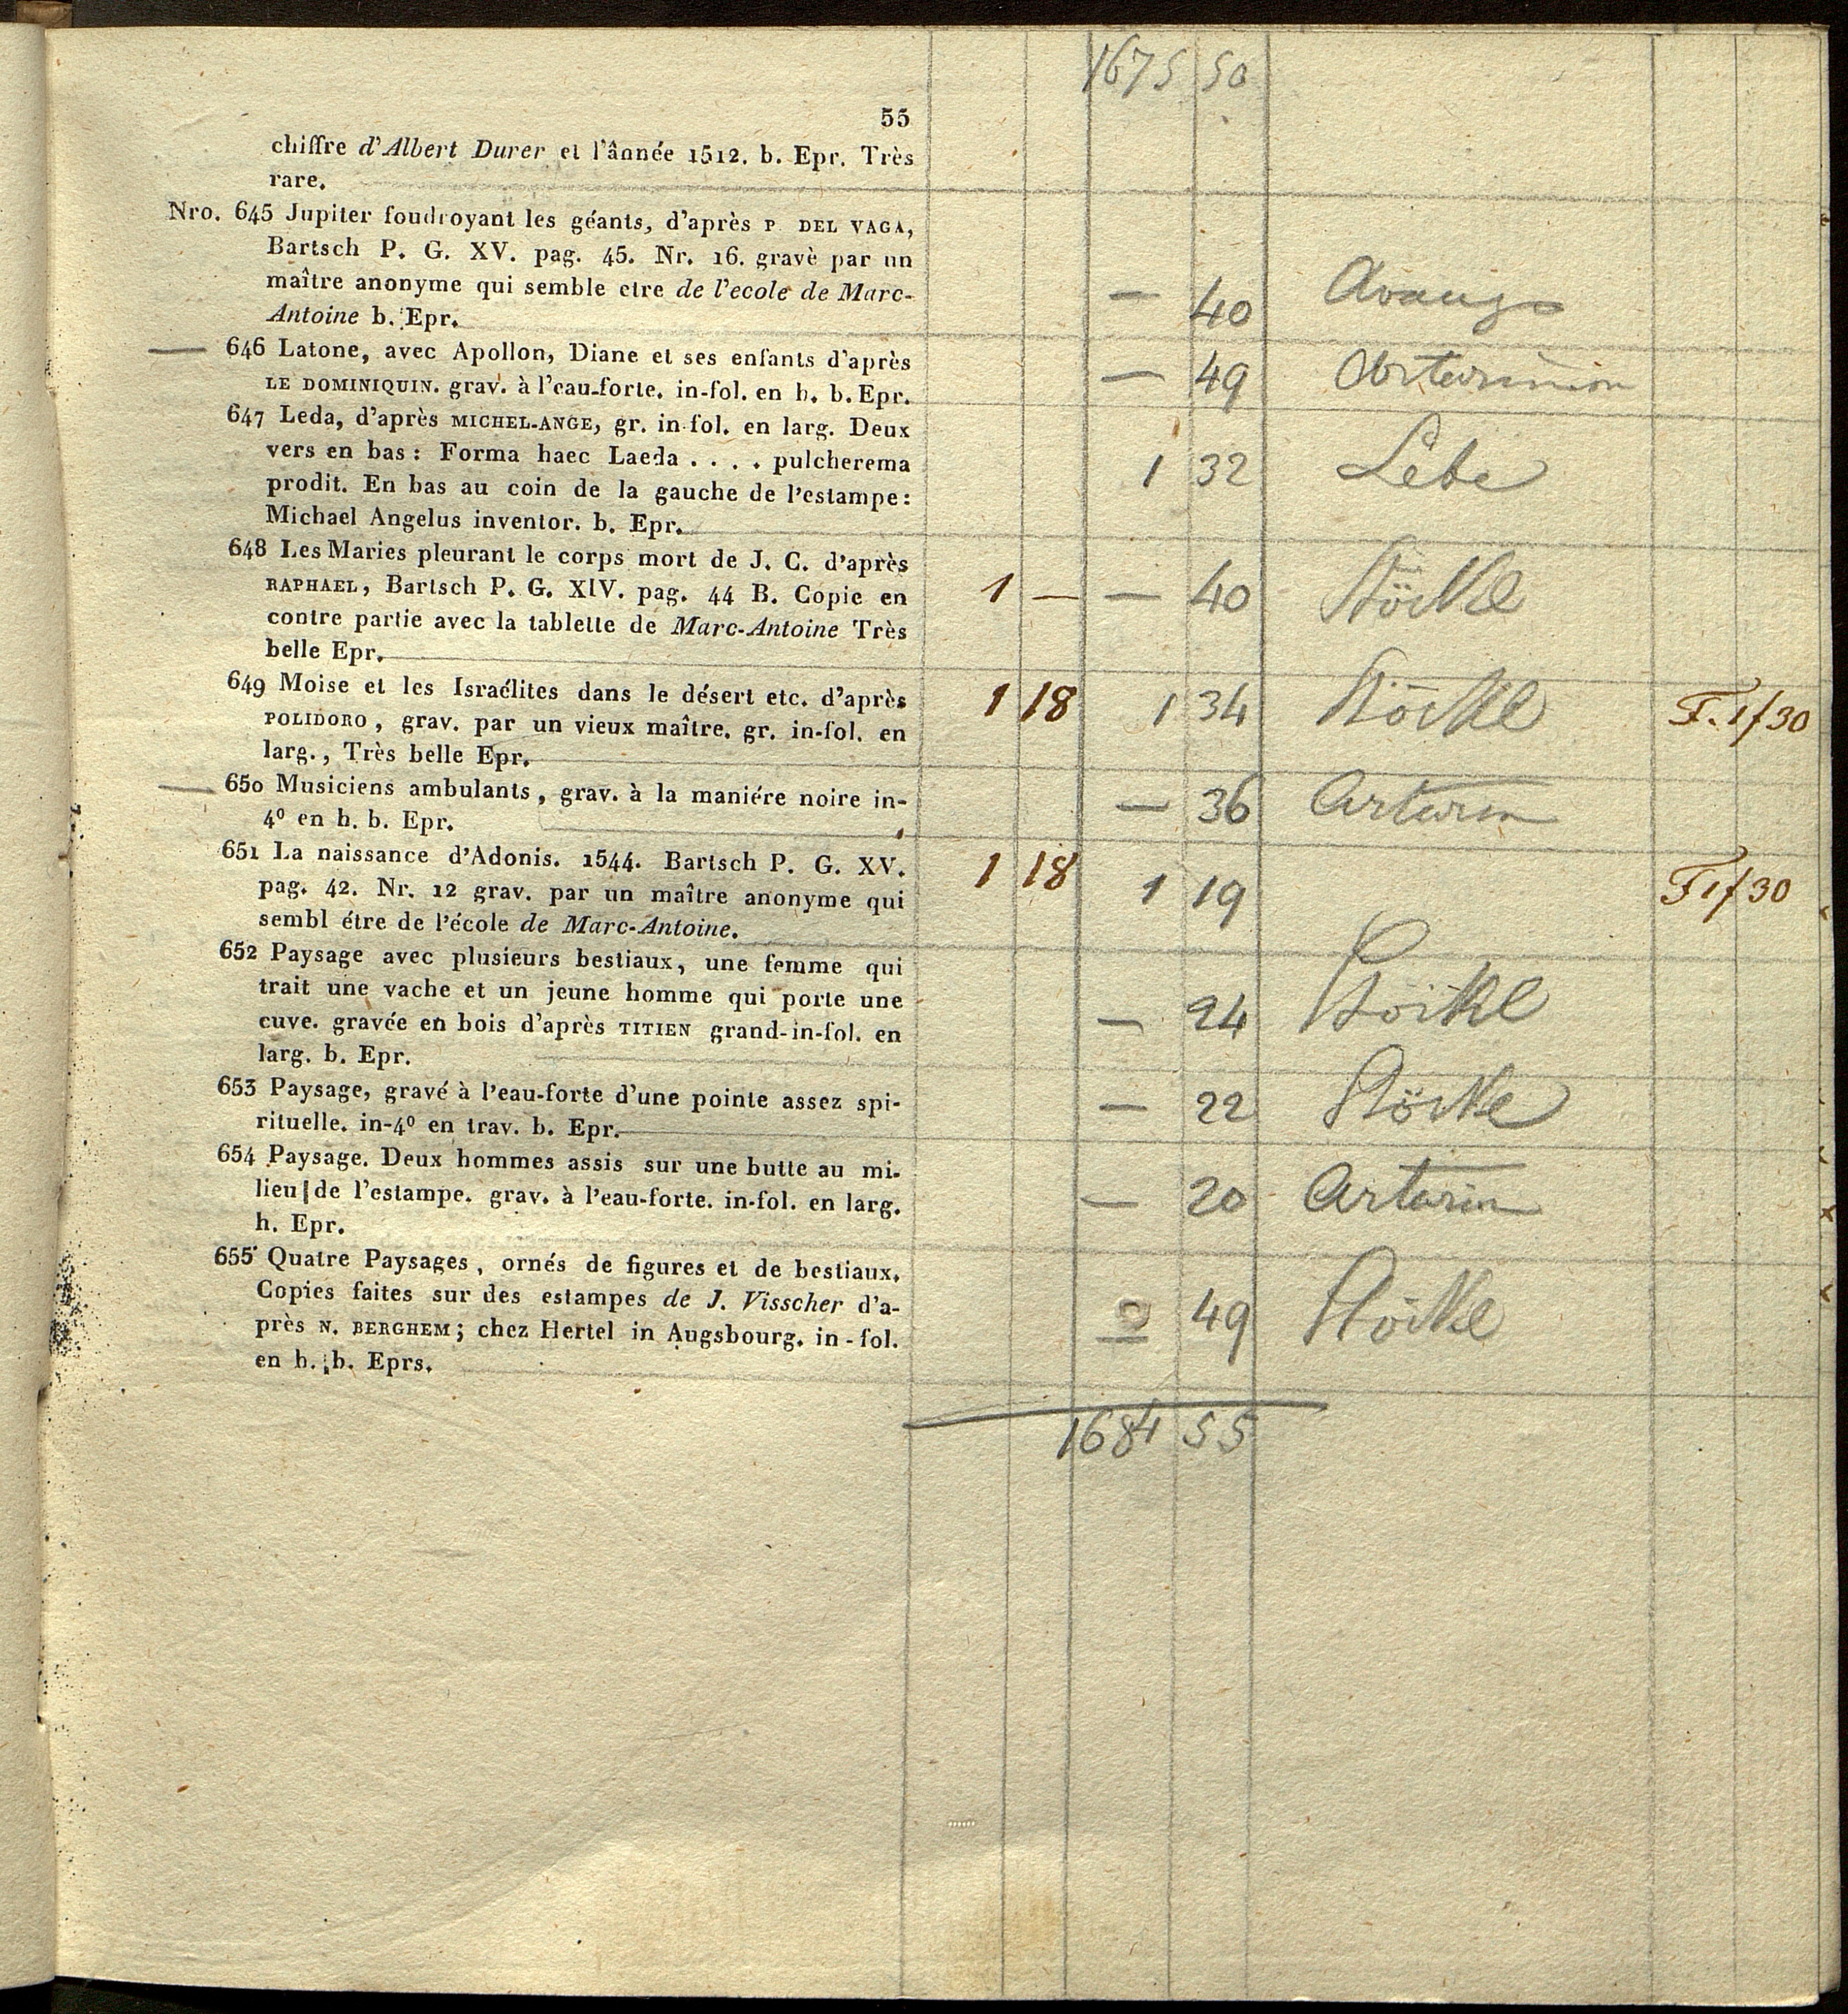 1675 50
55
chiffre d'Albert Durer et l'ânnée 1512. b. Epr. Très
rare.
Nro. 645 Jupiter foudroyant les géants, d'après P DEL VAGA,
Bartsch P. G. XV. pag. 45. Nr. 16. gravè par un
maître anonyme qui semble etre de l'ecole de Marc-
Antoine b. Epr. — 40
— 646 Latone, avec Apollon, Diane et ses enfants d'après
LE DOMINIQUIN. grav. à l'eau-forte. in-fol. en h. b. Epr. — 49
647 Leda, d'après MICHEL-ANGE, gr. in-fol. en larg. Deux
vers en bas: Forma haec Laeda . . . . pulcherema
prodit. En bas au coin de la gauche de l'estampe:
Michael Angelus inventor. b. Epr. 1 32
648 Les Maries pleurant le corps mort de J. C. d'après
RAPHAEL, Bartsch P. G. XIV. pag. 44 B. Copie en
contre partie avec la tablette de Marc-Antoine Très
belle Epr. 1 — — 40 Stöckl
649 Moise et les Israélites dans le désert etc. d'après
POLIDORO, grav. par un vieux maître. gr. in-fol. en
larg., Très belle Epr. 1 18 1 34 Stöckl F. 1f 30
— 650 Musiciens ambulants, grav. à la maniére noire in-
4º en h. b. Epr. — 36 Artarin
651 La naissance d'Adonis. 1544. Bartsch P. G. XV.
pag. 42. Nr. 12 grav. par un maître anonyme qui
sembl étre de l'école de Marc-Antoine. 1 18 1 19 F 1f 30
652 Paysage avec plusieurs bestiaux, une femme qui
trait une vache et un jeune homme qui porte une
cuve. gravée en bois d'après TITIEN grand-in-fol. en
larg. b. Epr. — 24 Stöckl
653 Paysage, gravé à l'eau-forte d'une pointe assez spi-
rituelle. in-4º en trav. b. Epr. — 22 Stöckl
654 Paysage. Deux hommes assis sur une butte au mi-
lieu de l'estampe. grav. à l'eau-forte. in-fol. en larg.
h. Epr. — 20 Artarin
655 Quatre Paysages, ornés de figures et de bestiaux.
Copies faites sur des estampes de J. Visscher d'a-
près N. BERGHEM; chez Hertel in Augsbourg. in-fol.
en h. b. Eprs. — 49 Stöckl
1684 55